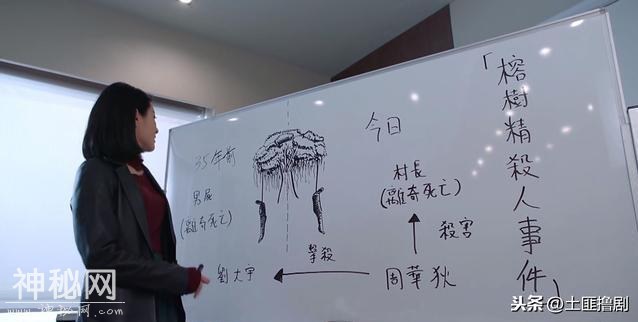 「榕樹精殺人事件」
今日
35年前
村長
(離奇死亡)
男屍
(離奇死亡)
殺害
學殺
劉大宇
周華狄
神秘网
头条@土匪撸剧